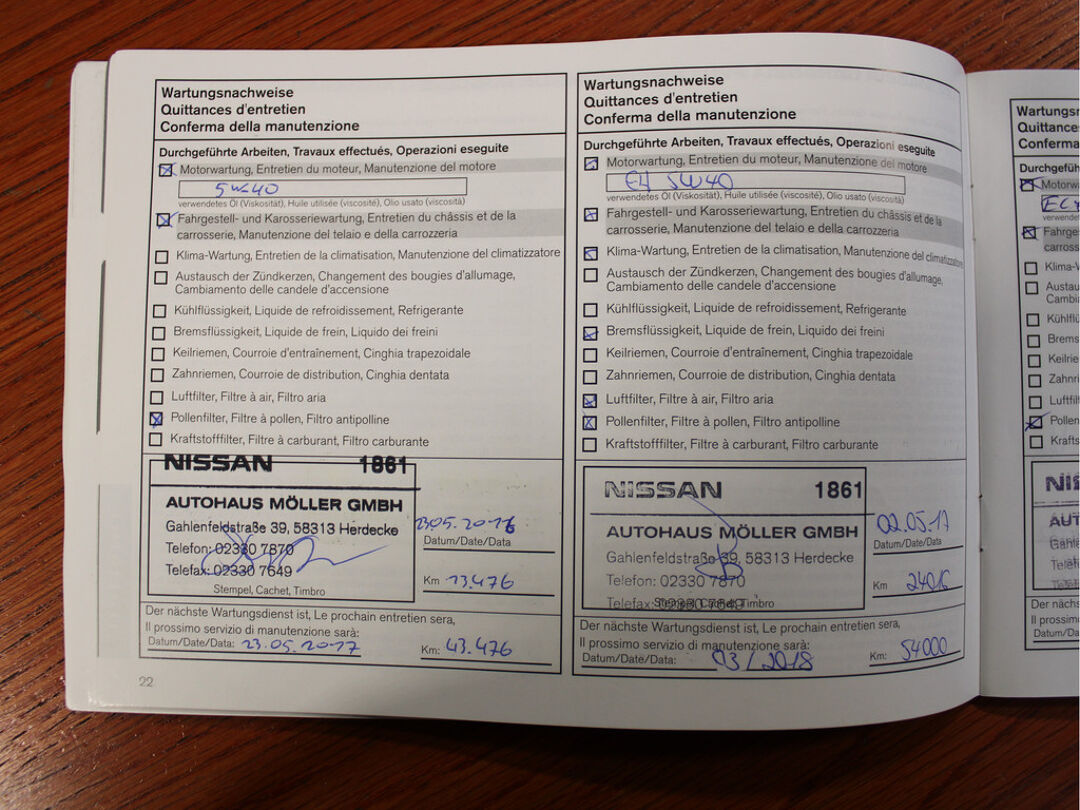 Wartungsnachweise
Quittances d'entretien
Conferma della manutenzione
Durchgeführte Arbeiten, Travaux effectués, Operazioni eseguite
Motorwartung, Entretien du moteur, Manutenzione del motore
5W40
verwendetes Öl (Viskosität), Huile utilisée (viscosité), Olio usato (viscosità)
Fahrgestell- und Karosseriewartung, Entretien du châssis et de la
carrosserie, Manutenzione del telaio e della carrozzeria
Klima-Wartung, Entretien de la climatisation, Manutenzione del climatizzatore
Austausch der Zündkerzen, Changement des bougies d'allumage,
Cambiamento delle candele d'accensione
Kühlflüssigkeit, Liquide de refroidissement, Refrigerante
Bremsflüssigkeit, Liquide de frein, Liquido dei freini
Keilriemen, Courroie d'entraînement, Cinghia trapezoidale
Zahnriemen, Courroie de distribution, Cinghia dentata
Luftfilter, Filtre à air, Filtro aria
Pollenfilter, Filtre à pollen, Filtro antipolline
Kraftstofffilter, Filtre à carburant, Filtro carburante
NISSAN 1861
AUTOHAUS MÖLLER GMBH
Gahlenfeldstraße 39, 58313 Herdecke
Telefon: 02330 7870
Telefax: 02330 7649
Stempel, Cachet, Timbro
23.05.2016
Datum/Date/Data
Km 13.476
Der nächste Wartungsdienst ist, Le prochain entretien sera,
Il prossimo servizio di manutenzione sarà:
Datum/Date/Data: 23.05.2017 Km: 43.476
22
Wartungsnachweise
Quittances d'entretien
Conferma della manutenzione
Durchgeführte Arbeiten, Travaux effectués, Operazioni eseguite
Motorwartung, Entretien du moteur, Manutenzione del motore
5W40
verwendetes Öl (Viskosität), Huile utilisée (viscosité), Olio usato (viscosità)
Fahrgestell- und Karosseriewartung, Entretien du châssis et de la
carrosserie, Manutenzione del telaio e della carrozzeria
Klima-Wartung, Entretien de la climatisation, Manutenzione del climatizzatore
Austausch der Zündkerzen, Changement des bougies d'allumage,
Cambiamento delle candele d'accensione
Kühlflüssigkeit, Liquide de refroidissement, Refrigerante
Bremsflüssigkeit, Liquide de frein, Liquido dei freini
Keilriemen, Courroie d'entraînement, Cinghia trapezoidale
Zahnriemen, Courroie de distribution, Cinghia dentata
Luftfilter, Filtre à air, Filtro aria
Pollenfilter, Filtre à pollen, Filtro antipolline
Kraftstofffilter, Filtre à carburant, Filtro carburante
NISSAN 1861
AUTOHAUS MÖLLER GMBH
Gahlenfeldstraße 39, 58313 Herdecke
Telefon: 02330 7870
Telefax: 02330 7649
Stempel, Cachet, Timbro
02.05.17
Datum/Date/Data
Km 24016
Der nächste Wartungsdienst ist, Le prochain entretien sera,
Il prossimo servizio di manutenzione sarà:
Datum/Date/Data: 03/2018 Km: 54000
Wartungs
Quittance
Conferma
Durchgefüh
Motorw
verwende
Fahrge
carross
Klima-W
Austau
Cambi
Kühlflü
Brems
Keilrie
Zahnri
Luftfil
Pollen
Krafts
NIS
AUT
Gahle
Telef
Der näch
Il prossim
Datum/Da